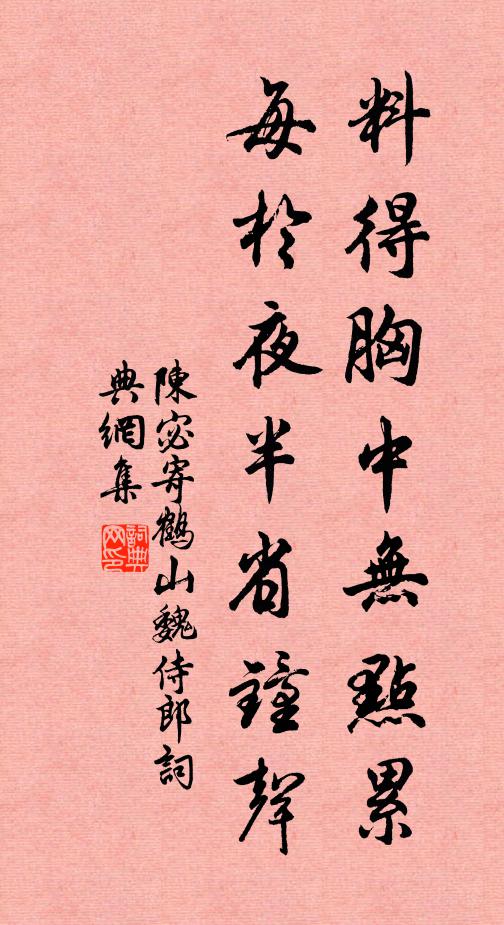 料得胸中無點累
每於夜半省鐘聲
陳宓寄鶴山魏侍郎詞
典網集
詞典網印